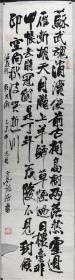 蘇武魂消漢使前古祠高樹兩茫然雲邊
雁斷胡天月隴上羊歸塞草煙回日樓臺非
甲帳去時冠劍是丁年茂陵不見封侯
印空向秋波哭逝川